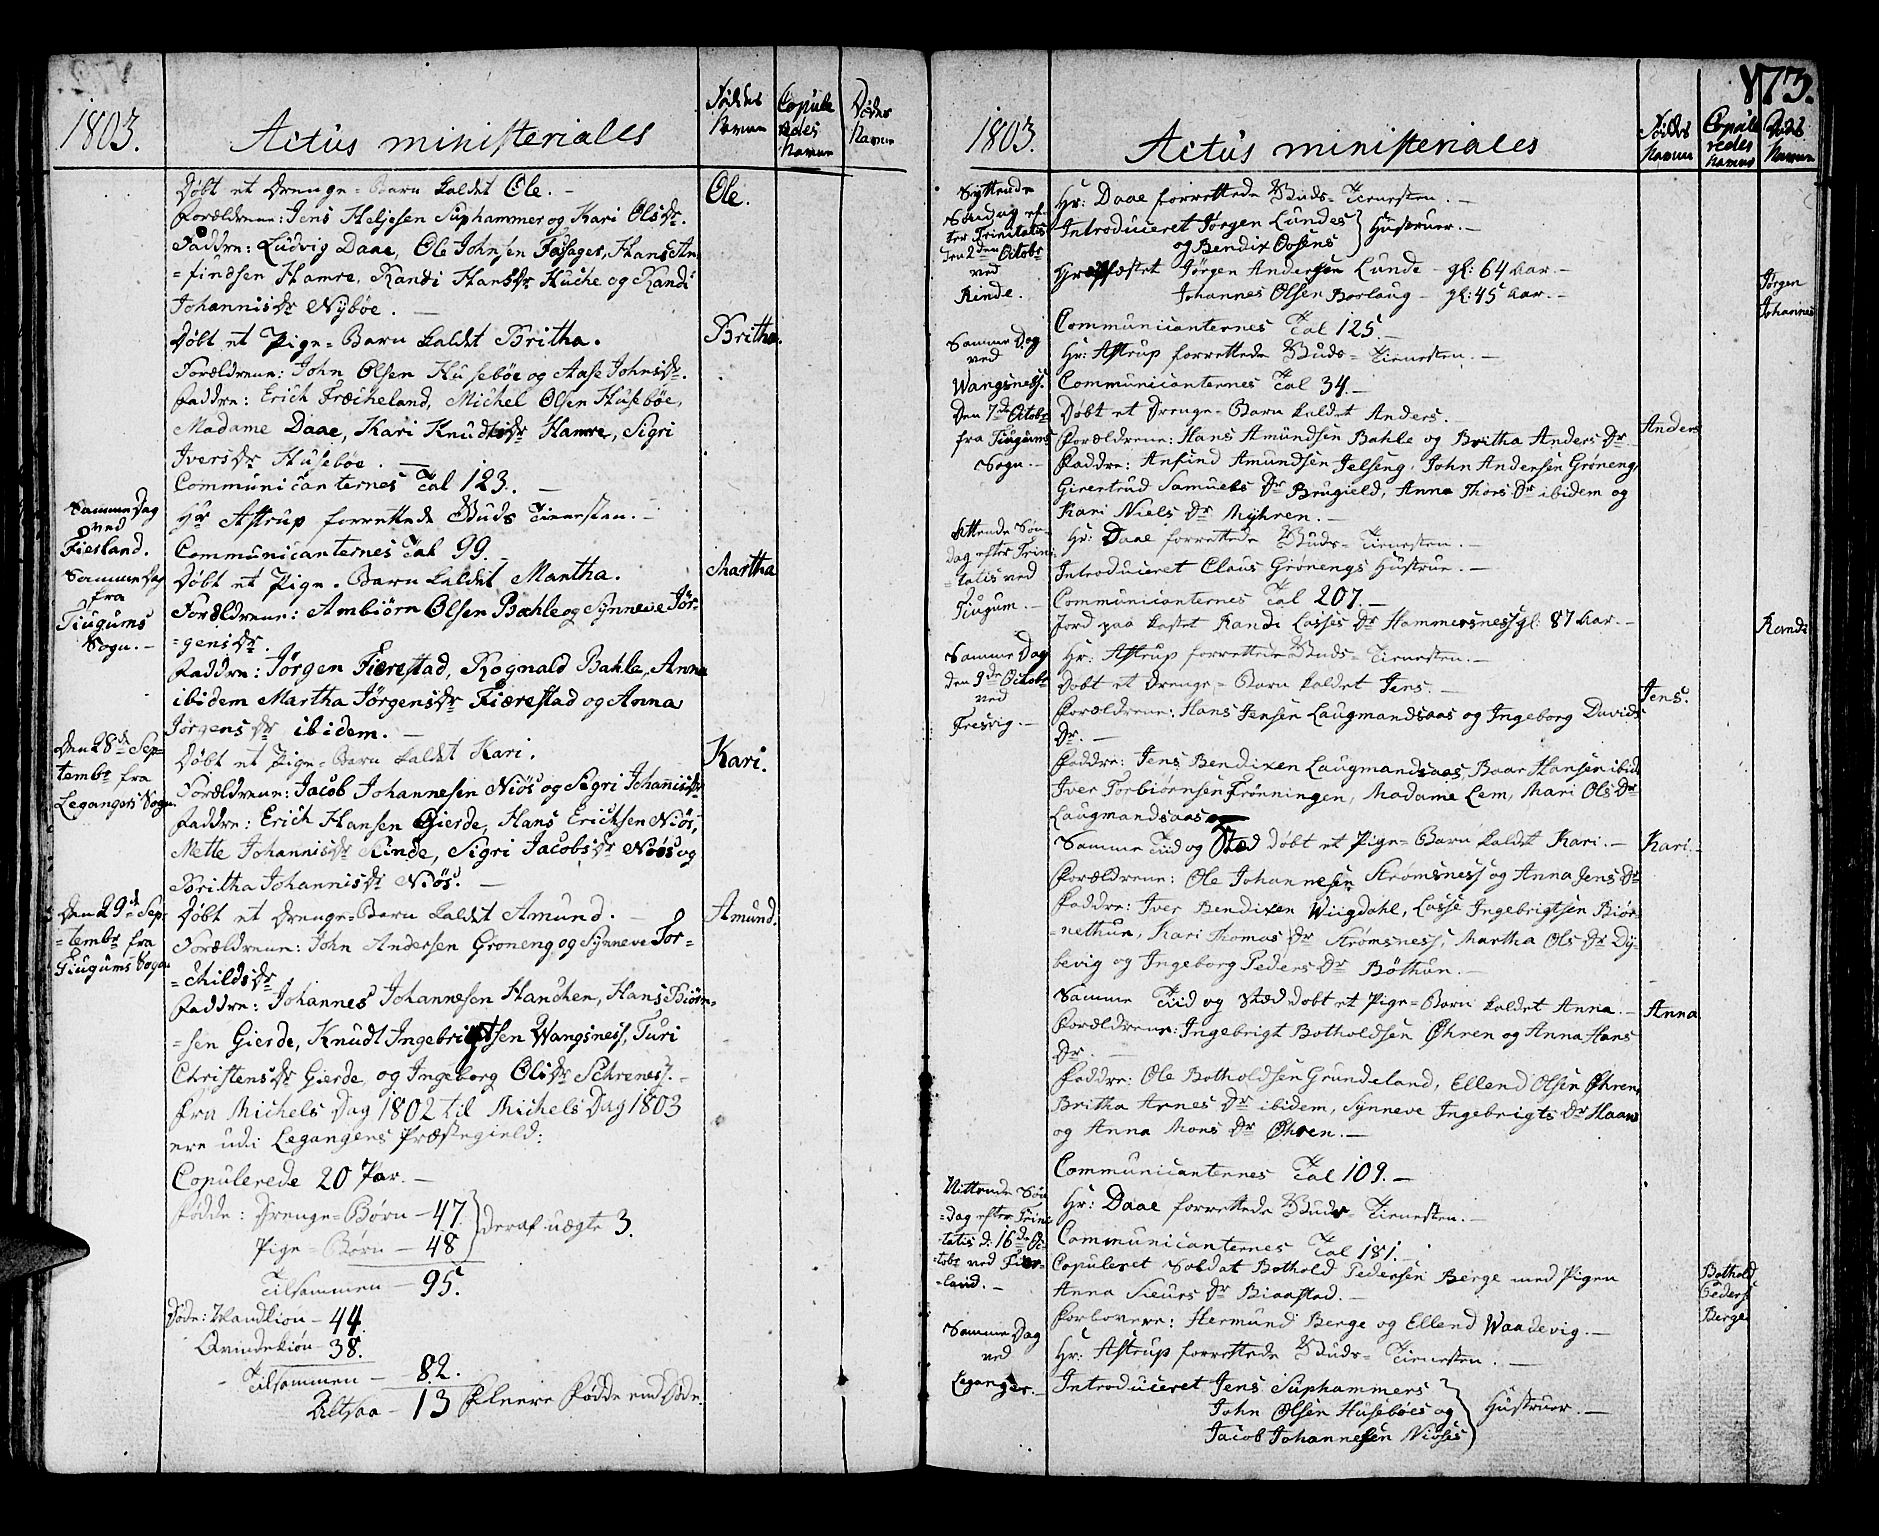 1803.
Actus ministeriales
Føddes Navne
Copule
redes
Navne
Dødes
Navne
Døbt et Drenge-Barn kaldet Ole. -
Ole.
Forældrene: Jens Heljesen Suphammer og Kari Olsdr.
Faddre: Ludvig Daae, Ole Johnsen Hans An-
=findsen Hamre, Randi Hansdr Huche og Randi
Johannisdr Nybøe. -
Døbt et Pige-Barn kaldet Britha.
Britha.
Forældrene: John Olsen Husebøe og Aase Johnsdr.
Faddre: Erich Fræcheland, Michel Olsen Husebøe,
Madame Daae, Kari Knudtsdr Hamre, Sigri
Iversdr Husebøe. -
Communicanternes Tal 123. -
Samme Dag
ved
Fierland.
Hr Astrup forrettede Guds Tienesten. -
Communicanternes Tal 99. -
Samme Dag
fra
Tiugums
Sogn. -
Døbt et Pige-Barn kaldet Martha.
Martha
Forældrene: Ambiørn Olsen Bahle og Synneve Jør-
=gensdr.
Faddre: Jørgen Fiærestad, Rognald Bahle, Anna
ibidem Martha Jørgensdr Fiærestad og Anna
Jørgensdr ibidem. -
Den 28de Sep-
tembr fra
Legangers Sogn.
Døbt et Pige-Barn kaldet Kari.
Kari.
Forældrene: Jacob Johannesen Niøs og Sigri Johannisdr
Faddre: Erich Hansen Gierde, Hans Erichsen Niøs,
Mette Johannisdr Rinde, Sigri Jacobsdr Niøs og
Britha Johannisdr Niøs. -
Den 29de Sep-
=tembr fra
Tiugums Sogn
Døbt et Drenge-Barn kaldet Amund. -
Amund.
Forældrene: John Andersen Grøneng og Synneve Tor-
=childsdr
Faddre: Johannes Johannesen Hanchen, Hans Biørn-
=sen Gierde, Knudt Ingebrigtsen Wangsness, Turi
Christensdr Gierde og Ingeborg Olsdr Schrenes. -
Fra Michels Dag 1802 til Michels Dag 1803
ere udi Legangers Præstegield:
Copulerede 20 Par. -
Fødde: Drenge-Børn - 47.
Pige-Børn - 48
deraf uægte 3.
Tilsammen - 95.
Døde: Mandkiøn - 44.
Qvindekiøn - 38.
Tilsammen - 82.
Altsaa - 13 fleere Fødde end Døde.
173.
1803.
Actus ministeriales
Føddes
Navne
Copule
redes
Navne
Døds
Navne
Syttende
Søndag ef-
ter Trinitatis
den 2den Octobr
ved
Rinde.
Hr: Daae forrettede Guds-Tienesten. -
Introduceret Jørgen Lundes
og Bendix Oosens
Hustruer. -
Græsfæstet Jørgen Andersen Lunde - gl: 64 Aar. -
Jørgen
Johannes Olsen Borlaug - gl: 45 Aar. -
Johannes
Communicanternes Tal 125. -
Samme Dag
ved
Wangsness.
Hr: Astrup forrettede Guds-Tienesten. -
Communicanternes Tal 34. -
Den 7de Octobr
fra Tiugums
Sogn. -
Døbt et Drenge-Barn kaldet Anders.
Anders
Forældrene: Hans Amundsen Bahle og Britha Anders Dr
Faddre: Anfind Amundsen Jelseng, John Andersen Grøneng
Giertrud Samuels Dr Brugield, Anna Thors Dr ibidem og
Kari Niels Dr Myhren. -
Attende Søn-
dag efter Trini-
=tatis ved
Tiugum. -
Hr: Daae forrettede Guds-Tienesten. -
Introduceret Claus Grønengs Hustrue. -
Communicanternes Tal 207. -
Jord paa kastet Randi Lasses Dr Hammersness gl: 87 Aar. -
Randi
Samme Dag
den 9de Octobr
ved
Fresvig. -
Hr: Astrup forrettede Guds-Tienesten. -
Døbt et Drenge-Barn kaldet Jens. -
Jens.
Forældrene: Hans Jensen Laugmandsaas og Ingeborg Davids
Dr. -
Faddre: Jens Bendixen Laugmandsaas, Baar Hansen ibid.
Iver Torbiørnsen Frønningen, Madame Lem, Mari Ols Dr
Laugmandsaas
Samme Tiid og Stæd døbt et Pige-Barn kaldet Kari. -
Kari. -
Forældrene: Ole Johannesen Strømsness og Anna Jens Dr
Faddre: Iver Bendixen Wiigdahl, Lasse Ingebrigtsen Biør-
=nethun, Kari Thomas Dr Strømsness, Martha Ols Dr Dy-
bevig og Ingeborg Peders Dr Bøthun. -
Samme Tiid og Stæd døbt et Pige-Barn kaldet Anna. -
Anna
Forældrene: Ingebrigt Botholdsen Øhren og Anna Hans
Dr. -
Faddre: Ole Botholdsen Grundeland, Ellend Olsen Øhren,
Britha Arnes Dr ibidem, Synneve Ingebrigts Dr Haane
og Anna Mons Dr Øhren. -
Communicanternes Tal 109. -
Nittende Søn
-dag efter Trini
-tatis d: 16de Oc-
tobr ved Fier-
-land. -
Hr: Daae forrettede Guds-Tienesten. -
Communicanternes Tal 181. -
Copuleret Soldat Bothold Pedersen Berge med Pigen
Bothold
Peders
Berge
Anna Siurs Dr Biaastad. -
Forlovere: Hermund Berge og Ellend Waadevig. -
Samme Dag
ved
Leganger. -
Hr: Astrup forrettede Guds-Tienesten. -
Introduceret Jens Suphammers
John Olsen Husebøes og
Jacob Johannesen Niøses
Hustruer. -